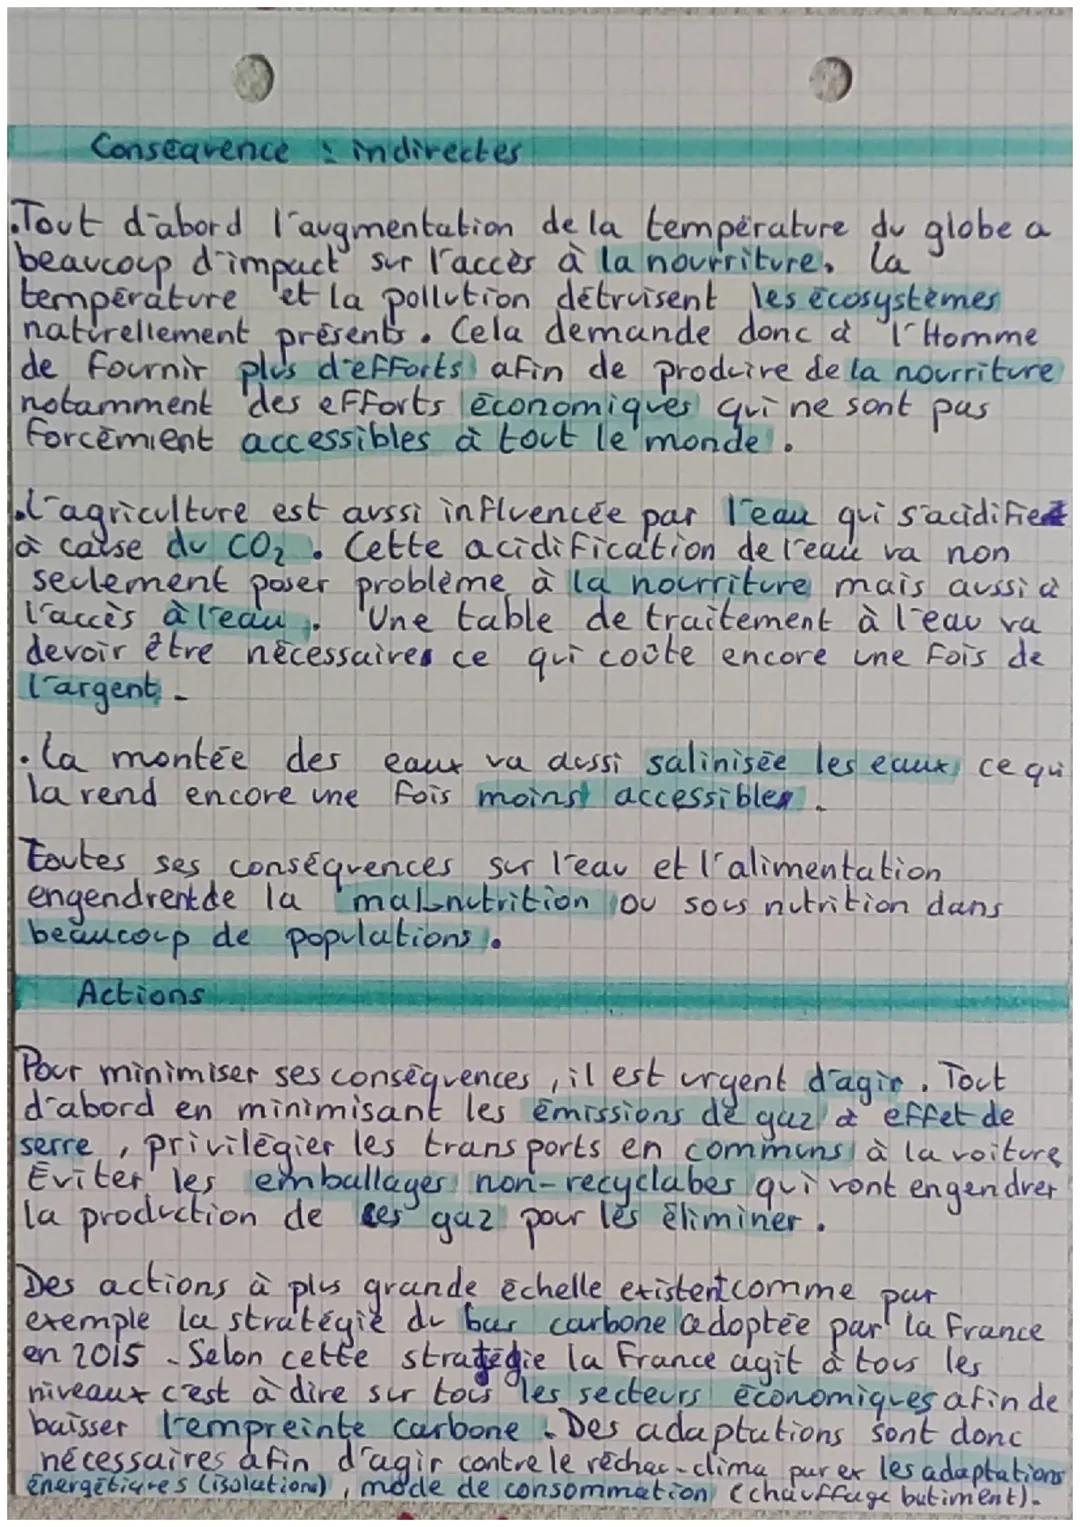 Conséquence : indirectes
.Tout d'abord l'augmentation de la température du globe a
beaucoup d'impact sur l'accès à la nourriture. La
température et la pollution détruisent les écosystèmes
naturellement présents. Cela demande donc à l'Homme
de fournir plus d'efforts afin de produire de la nourriture
notamment des efforts économiques qui ne sont pas
forcément accessibles à tout le monde.
.L'agriculture est aussi influencée par l'eau qui s'acidifie
à cause du CO₂. Cette acidification de l'eau va non
seulement poser problème à la nourriture mais aussi à
l'accès à l'eau. Une table de traitement à l'eau va
devoir être nécessaires ce qui coûte encore une fois de
l'argent.
. La montée des eaux va aussi salinisée les eaux ce qui
la rend encore une fois moins accessibles.
Toutes ses conséquences sur l'eau et l'alimentation
engendrent de la malnutrition ou sous nutrition dans
beaucoup de populations.
Actions
Pour minimiser ses conséquences, il est urgent d'agir. Tout
d'abord en minimisant les émissions de gaz à effet de
serre, privilégier les transports en communs à la voiture
Éviter les emballages non-recyclabes qui vont engendrer
la production de ces gaz pour les éliminer.
Des actions à plus grande échelle existent comme par
exemple la stratégie du bas carbone adoptée par la France
en 2015. Selon cette stratégie la France agit à tous les
niveaux c'est à dire sur tous les secteurs économiques afin de
baisser l'empreinte carbone. Des adaptations sont donc
nécessaires afin d'agir contre le réchau-clima par ex les adaptations
énergétiques (isolations), mode de consommation (chauffage batiment).